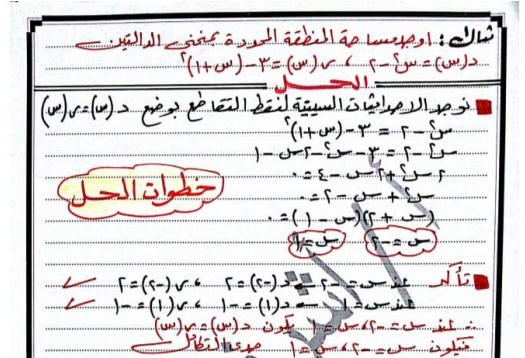 مثال: اوجد مساحة المنطقة المحددة بمنحنى الدالتين
د(س) = س² - ٢ ، ر(س) = ٣ - (س + ١)²
الحل
نوجد الاحداثيات السينية لنقط التقاطع بوضع د(س) = ر(س)
س² - ٢ = ٣ - (س + ١)²
س² - ٢ = ٣ - س² - ٢س - ١
٢س² + ٢س - ٤ = ٠
س² + س - ٢ = ٠
خطوات الحل
(س + ٢)(س - ١) = ٠
س = -٢ س = ١
تأكد عند س = -٢ د(-٢) = ٢ ، ر(-٢) = ٢
عند س = ١ د(١) = -١ ، ر(١) = -١
∴ عند س = -٢ ، س = ١ يكون د(س) = ر(س)
فيكون س = -٢ ، س = ١ حدى التكامل